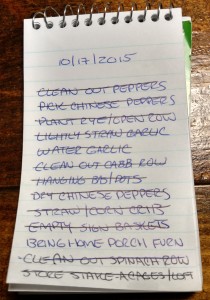 10/17/2015
CLEAN OUT PEPPERS
PICK CHINESE PEPPERS
PLANT RYE/OPEN ROW
LIGHTLY STRAW GARLIC
WATER GARLIC
CLEAN OUT CABB ROW
HANGING BASKETS
DRY CHINESE PEPPERS
STRAW/CORN CRIB
EMPTY SIGN BASKETS
BRING HOME PORCH FURN
-CLEAN OUT SPINACH ROW
STORE STAKE